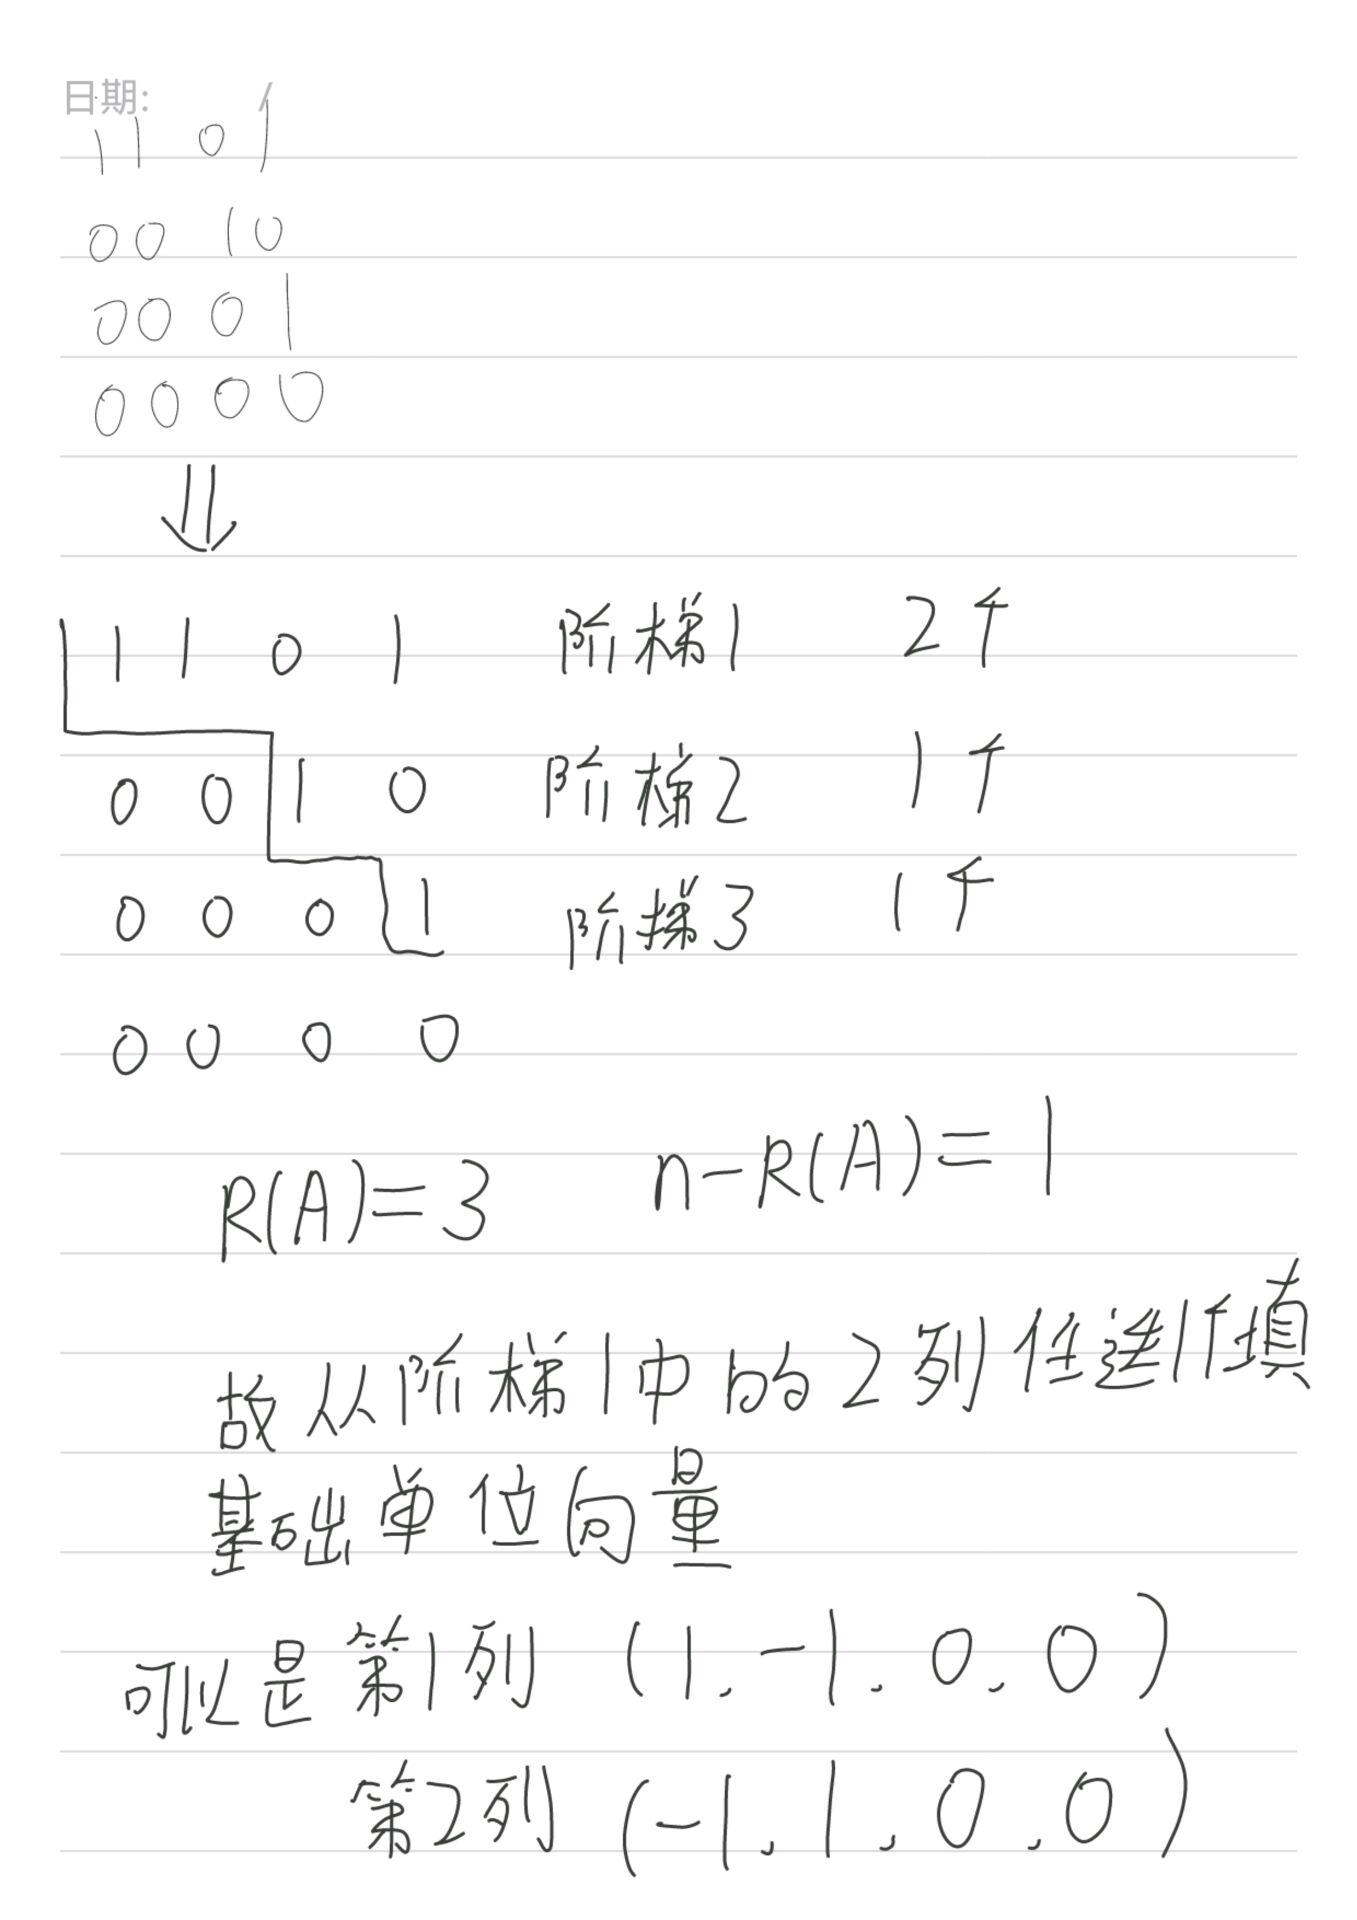 日期: /
1 1 0 1
0 0 1 0
0 0 0 1
0 0 0 0
⇓
1 1 0 1 阶梯1 2个
0 0 1 0 阶梯2 1个
0 0 0 1 阶梯3 1个
0 0 0 0
R(A)=3 n-R(A)=1
故从阶梯1中的2列任选1个填
基础单位向量
可以是第1列 (1,-1,0,0)
第2列 (-1,1,0,0)